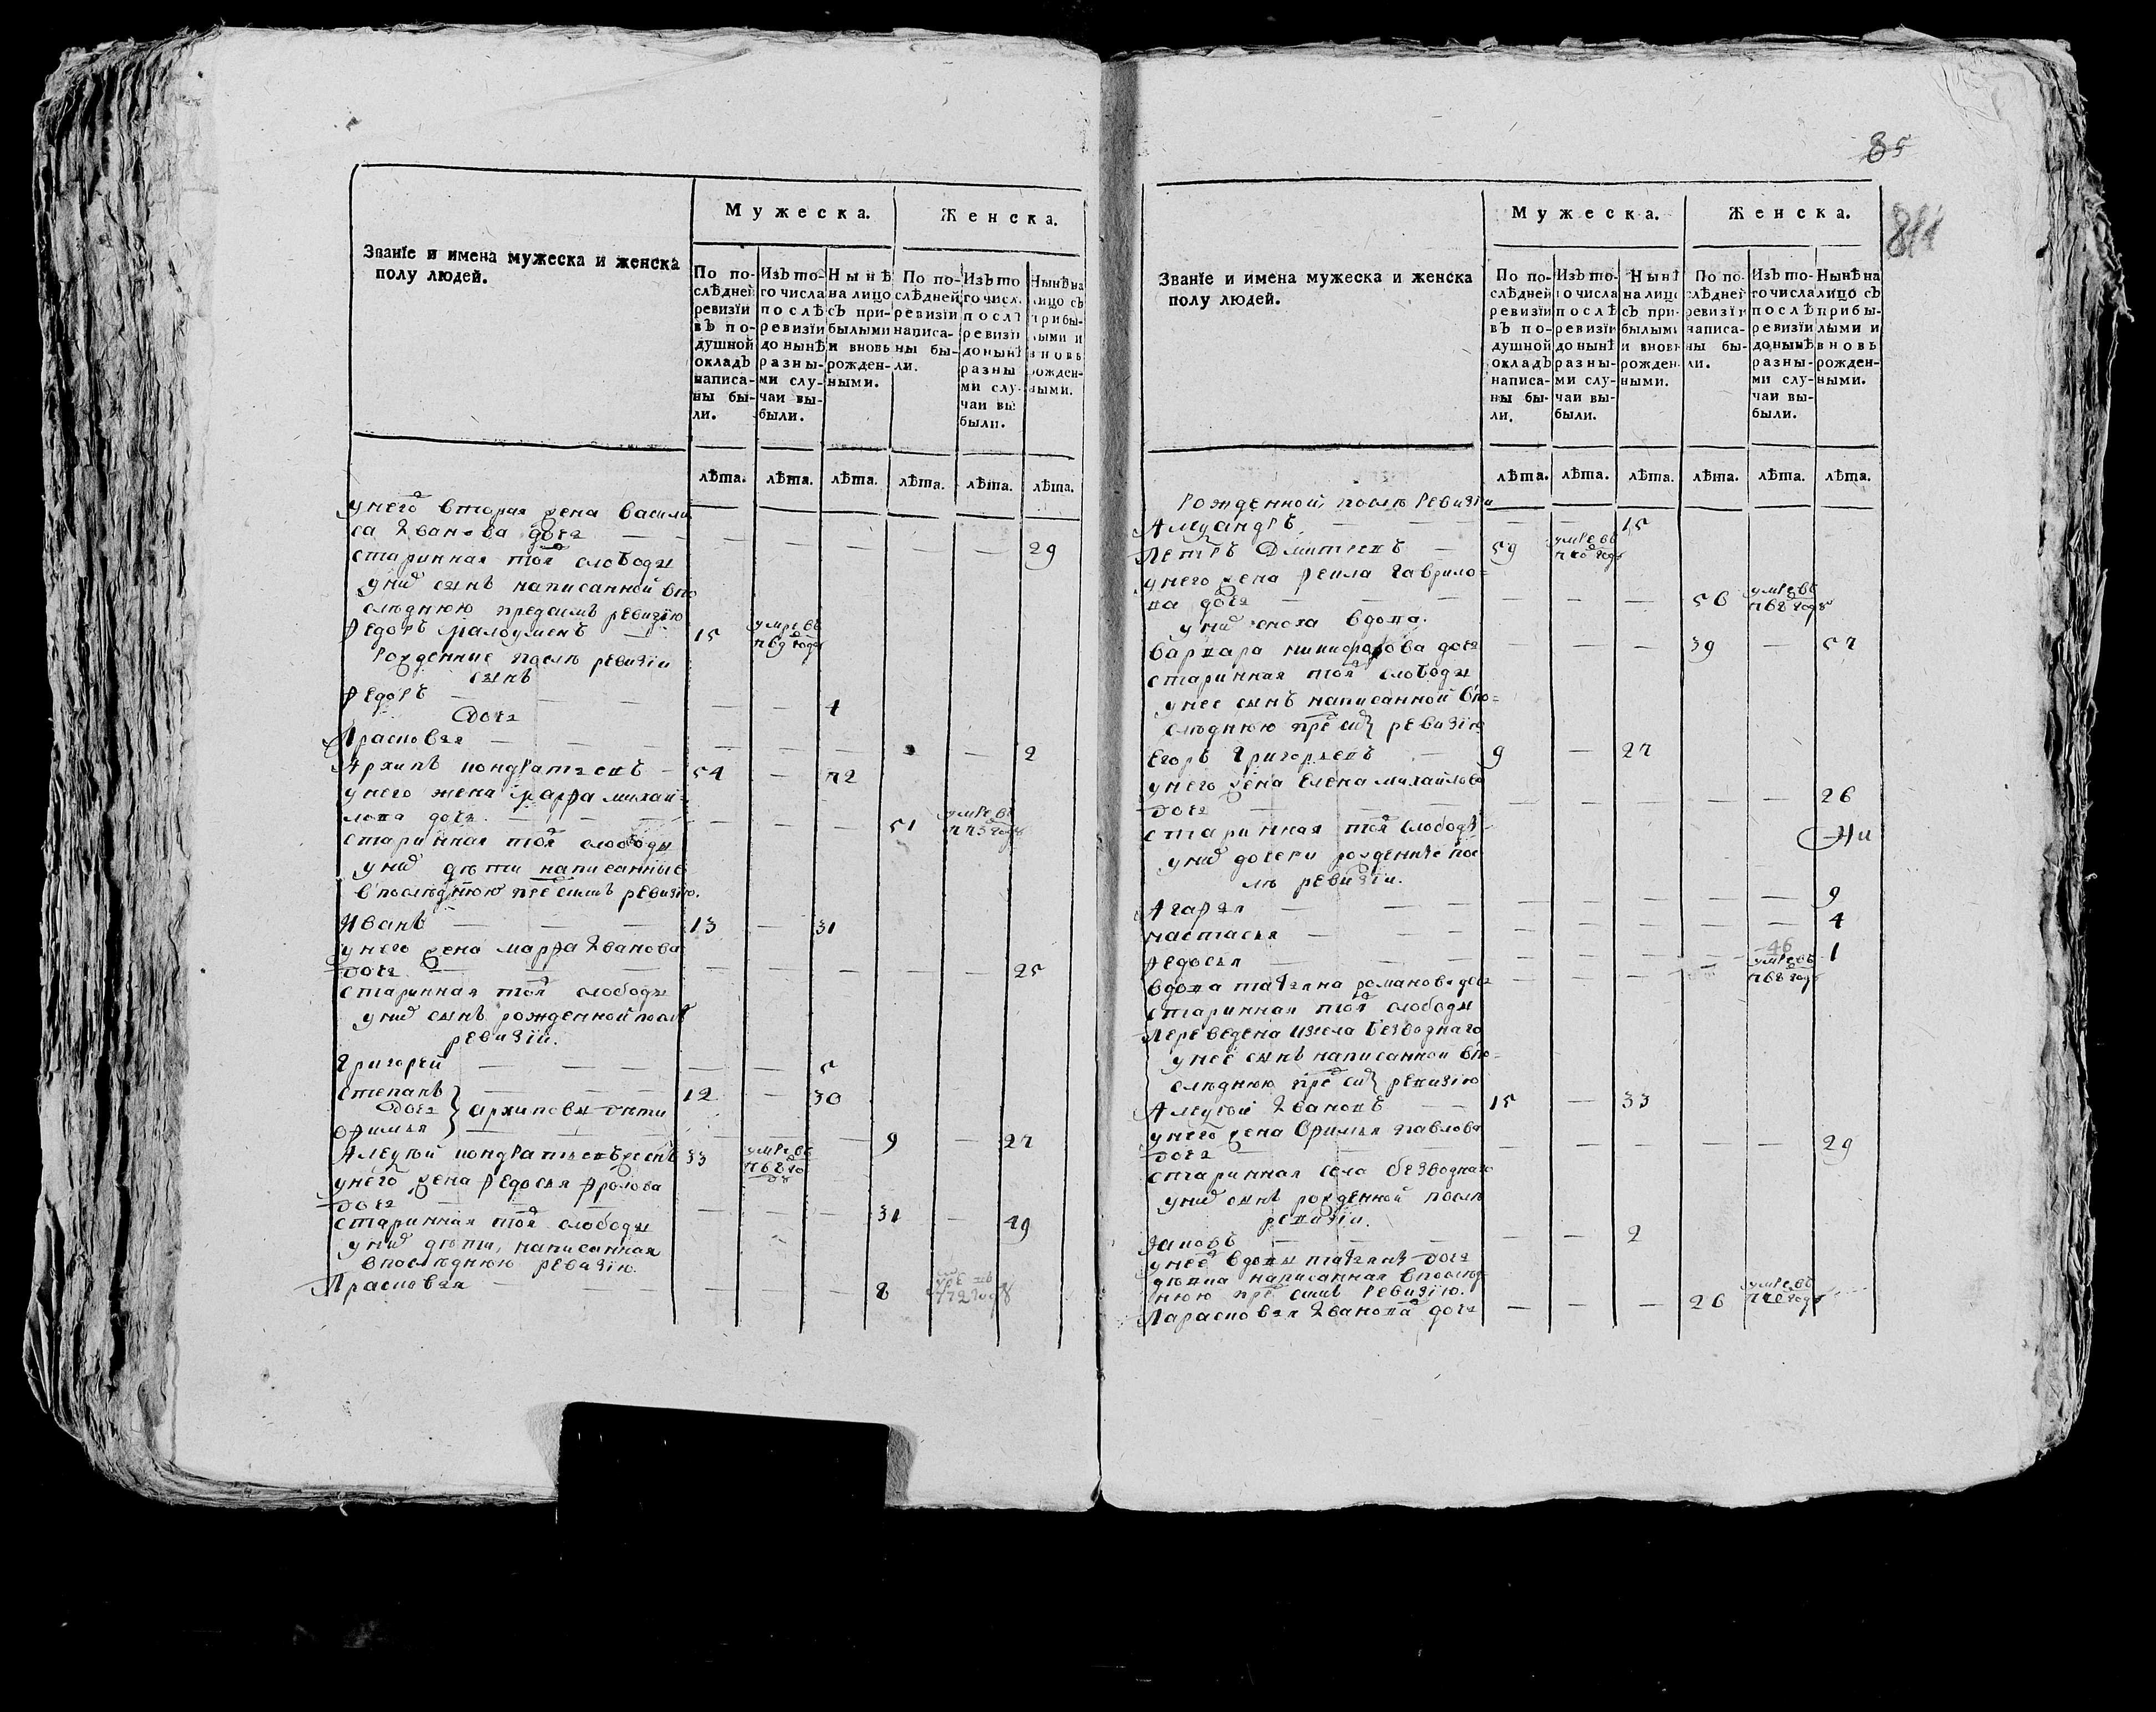 Званїе и имена мужеска и женска
полу людей.
Мужеска.
Женска.
По по-
слѣдней
ревизїи
вЪ по-
душной
окладЪ
написа-
ны бы-
ли.
ИзЪ то-
го числа
послѣ
ревизїи
до нынѣ
разны-
ми слу-
чаи вы-
были.
Нынѣ
на лицо
сЪ при-
былыми
и вновь
рожден-
ными.
По по-
слѣдней
ревизїи
написа-
ны бы-
ли.
ИзЪ то
го числ.
послѣ
ревизїи
до нынѣ
разны
ми слу-
чаи вы
были.
Нынѣ на
лицо сЪ
прибы-
лыми и
вновь
рожден-
ными.
лѣта. лѣта. лѣта. лѣта. лѣта. лѣта.
у него вторая жена васили
са Иванова дочь — — — — — — — 29
старинная той слободы
у них сынъ написанной впо
слѣднюю пред симъ ревизїю
Федоръ 15 умре въ 769 годе
рожденные послѣ ревизїи
сынъ
Федоръ — — — — — 4
дочь
Прасковья — — — — — — — — 2
Архипъ кондратьевъ — 54 — 72
у него жена марфа михай
лова дочь — — — — 51 умре въ 773 году
старинная той слободы
у них дѣти написанные
в послѣднюю пред симъ ревизїю.
Иванъ — — — 13 — 31
у него жена марфа Иванова
дочь — — — — — — — 25
старинная той слободы
у них сынъ рожденной послѣ
ревизїи.
Григорей — — — — — 5
степанъ — — 12 — 30
дочь } архиповы дѣти
Офимья — — — — — — 9 — 27
Алексѣй кондратьевъ 33 умре въ 768 го
у него жена Федосья Фролова
дочь — — — — — — 31 — 49
старинная той слободы
у них дѣти, написанная
в послѣднюю ревизїю
Прасковья — — — — — — 8 772 году
85
Званїе и имена мужеска и женска
полу людей.
Мужеска.
Женска.
По по-
слѣдней
ревизїи
вЪ по-
душной
окладЪ
написа-
ны бы-
ли.
ИзЪ то-
го числа
послѣ
ревизїи
до нынѣ
разны-
ми слу-
чаи вы-
были.
Нынѣ
на лицо
сЪ при-
былыми
и вновь
рожден-
ными.
По по-
слѣдней
ревизїи
написа-
ны бы-
ли.
ИзЪ то-
го числа
послѣ
ревизїи
до нынѣ
разны-
ми слу-
чаи вы-
были.
Нынѣ на
лицо сЪ
прибы-
лыми и
вновь
рожден-
ными.
лѣта. лѣта. лѣта. лѣта. лѣта. лѣта.
рожденной, послѣ ревизїи
Александръ — — — — — 15
Петръ Дмитреевъ — 59 умре въ году
у него жена Гаврило-
ва дочь — — — — — — 56 умре въ 768 годе
у них вдова.
Варвара никифорова дочь — — — 39 — 57
старинная той слободы
у нее сынъ написанной впо-
слѣднюю пред сим ревизїю
Егоръ Григорьевъ — 9 — 27
у него жена Елена михайлова
дочь — — — — — — — — 26
старинная той слободы
у них дочери рожденные пос
лѣ ревизїи.
Агафья — — — — — — — — 9
настасья — — — — — — — — 4
Федосья — — — — — — — 1
вдова татьяна романова дочь — — — — 46 умре въ 768 году
старинная той слободы
Переведена из села безводнаго
у нее сынъ написанной впо-
слѣднюю пред сим ревизїю
Алексѣй Ивановъ — — 15 — 33
у него жена Офимья павлова
дочь — — — — — — — 29
старинная села безводнаго
у них сынъ рожденной послѣ
ревизїи.
Яковъ — — — — — — 2
у нее вдовы татьяны дочь
дѣвка написанная впослѣд
нюю пред симъ ревизїю.
Парасковья Иванова дочь — — — 26 умре въ году